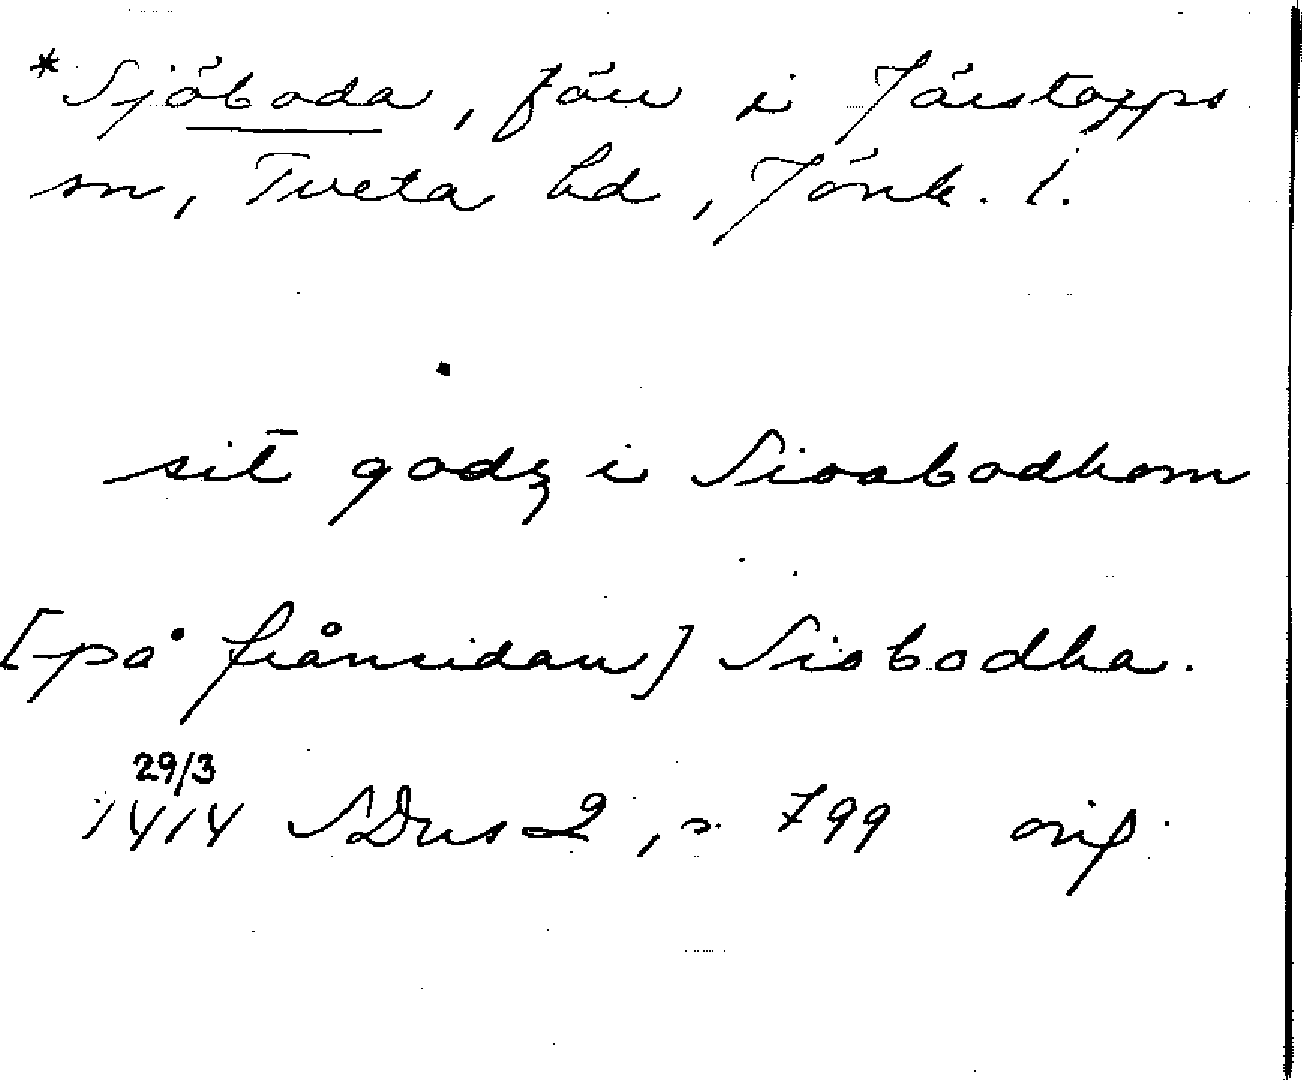 *Sjöboda, förr i Järstorps
sn, Tveta hd, Jönk. l.
sit godz i Sioobodhom
[på frånsidan] Siobodha.
29/3
1414 SDns 2, s. 799 orig.